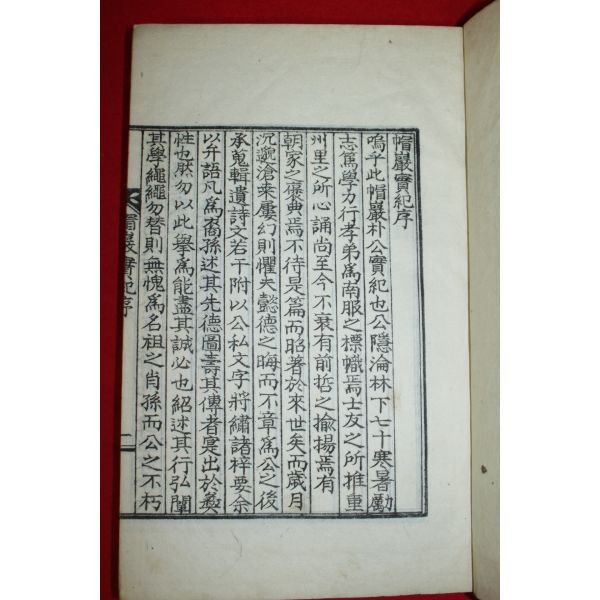 帽巖實紀序
嗚乎此帽巖朴公實紀也公隱淪林下七十寒暑勵
志篤學力行孝弟爲南服之標幟焉士友之所推重
州里之所心誦尚至今不衰有前哲之揄揚焉有
朝家之褒典焉不待是篇而昭著於來世矣而歲月
沉邈滄桒屢幻則懼夫懿德之晦而不章爲公之後
承蒐輯遺詩文若干附以公私文字將繡諸梓要余
以弁語凡爲裔孫述其先德圖壽其傳者寔出於彜
性也然勿以此擧爲能盡其誠必也紹述其行弘闡
其學繩繩勿替則無愧爲名祖之肖孫而公之不朽
帽巖實紀序
一